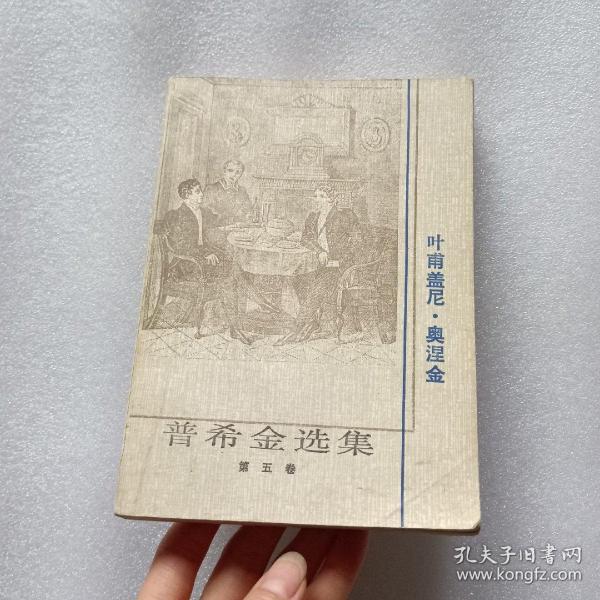 叶甫盖尼·奥涅金
普希金选集
第五卷
孔夫子旧书网
www.kongfz.com